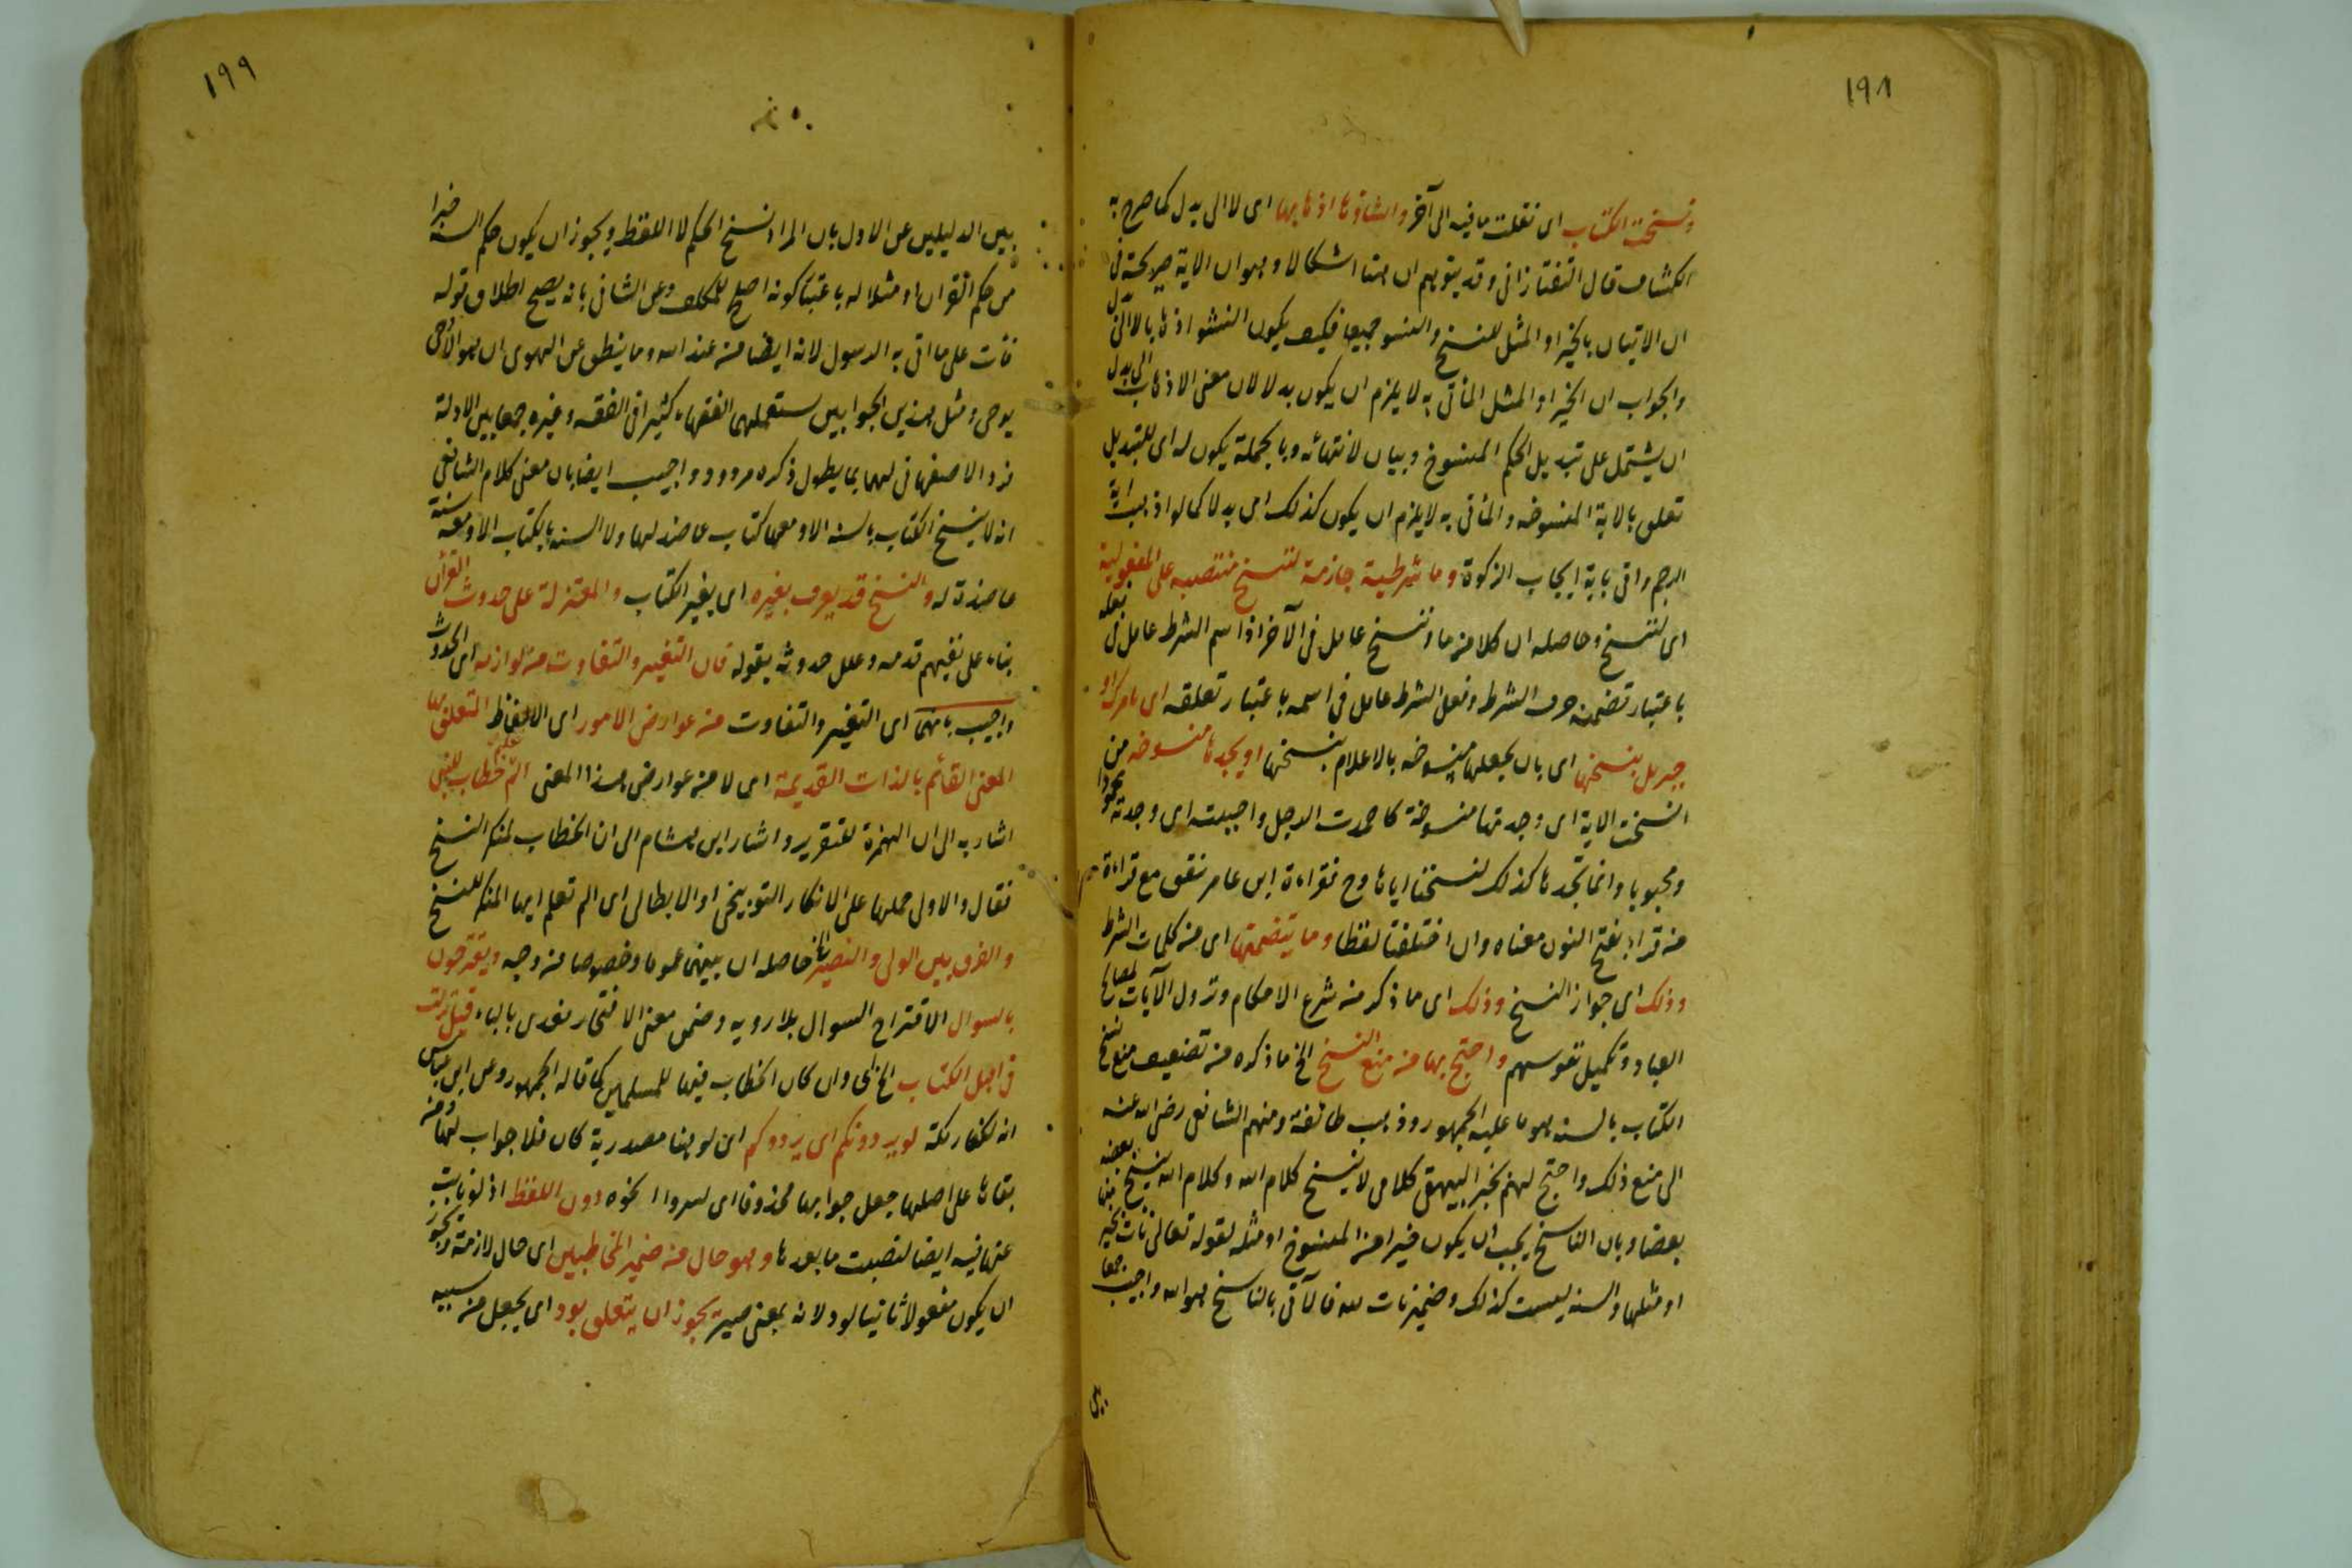 ١٩٨
ونسخت الكتاب اى نقلت ما فيه الى آخر وانساؤها اذهابها اى لا الى بدل كما صرح به
الكشاف قال التفتازانى وقد يتوهم ان ههنا اشكالا وهو ان الاية صريحة فى
ان الاتيان بالخير او المثل للنسخ والنسو جميعا فكيف يكون النسو اذهابا لا الى بدل
والجواب ان الخير او المثل المأتى به لا يلزم ان يكون بدلا لان معنى الاذهاب الى بدل
ان يشتمل على تبديل الحكم المنسوخ وبيان لانتهائه وبالجملة يكون له اى للتبديل
تعلق بالاية المنسوخه والمأتى به لا يلزم ان يكون كذلك اى بدلا كما لو اذهبت اية
الرجم واتى باية ايجاب الزكوة وما شرطية جازمة لننسخ منتصبه على المفعولية
اى لننسخ وحاصله ان كلا من ما وننسخ عامل فى الآخر اذ اسم الشرط عامل فى فعله
باعتبار تضمنه حرف الشرط وفعل الشرط عامل فى اسمه باعتبار تعلقه اى نامرك او
جبريل بنسخها اى بان يجعلها منسوخه بالاعلام بنسخها او يجدها منسوخه من
انسخت الاية اى وجدتها منسوخة كاحمدت الرجل واجبنته اى وجدته محمودا
ومجبوبا وانما تجدها كذلك لنسخنا اياها وح فقراءة ابن عامر تتفق مع قراءة
من قرا بفتح النون معناه وان اختلفتا لفظا وما يتضمنها اى من كلمات الشرط
وذلك اى جواز النسخ وذلك اى ما ذكر من شرع الاحكام ونزول الآيات لمصالح
العباد وتكميل نفوسهم واحتج بها من منع النسخ الخ ما ذكره من تضعيف منع نسخ
الكتاب بالسنه هو ما عليه الجمهور وذهب طائفة ومنهم الشافعى رضى الله عنه
الى منع ذلك واحتج لهم بخبر البيهقى كلامى لا ينسخ كلام الله وكلام الله ينسخ بعضه
بعضا وبان الناسخ يجب ان يكون خيرا من المنسوخ او مثله لقوله تعالى نات بخير منها
او مثلها والسنه ليست كذلك وضمير نات لله فالآتى بالناسخ هو الله واجيب جمعا
بين
١٩٩
بين الدليلين عن الاول بان المراد نسخ الحكم لا اللفظ ويجوز ان يكون حكم السنه خيرا
من حكم القران او مثلا له باعتبار كونه اصلح للمكلف وعن الثانى بانه يصح اطلاق قوله
نات على ما اتى به الرسول لانه ايضا من عند الله وما ينطق عن الهوى ان هو الا وحى
يوحى ومثل هذين الجوابين يستعملهما الفقهاء كثيرا فى الفقه وغيره جمعا بين الادلة
فرد الاصفهانى لهما بما يطول ذكره مردود واجيب ايضا بان معنى كلام الشافعى
انه لا ينسخ الكتاب بالسنه الا ومعها كتاب عاضد لها ولا السنه بالكتاب الا ومعه سنة
عاضدة له والنسخ قد يعرف بغيره اى بغير الكتاب والمعتزلة على حدوث القرآن
بناء على نفيهم قدمه وعلل حدوثه بقوله فان التغير والتفاوت من لوازمه اى الحدوث
واجيب بانهما اى التغير والتفاوت من عوارض الامور اى الالفاظ المتعلق بها
المعنى القائم بالذات القديمة اى لا من عوارض هذا المعنى الم تعلم خطاب للنبى
اشار به الى ان الهمزة للتقرير واشار ابن هشام الى ان الخطاب لمنكر النسخ
فقال والاولى حملها على الانكار التوبيخى او الابطالى اى الم تعلم ايها المنكر للنسخ
والفرق بين الولى والنصير الخ حاصله ان بينهما عموما وخصوصا من وجه ويقترحون
بالسوال الاقتراح السوال بلا رويه وضمن معنى الافتخار فعدى بالباء قيل نزلت
فى اهل الكتاب الخ اى وان كان الخطاب فيها للمسلمين كما قاله الجمهور وعن ابن عباس
انه لكفار مكة لو يردونكم اى يردوكم اى لو هنا مصدرية كان فلا جواب لها ومن
بقاها على اصلها جعل جوابها محذوفا اى لسروا او نحوه دون اللفظ اذ لو نابت
عنها فيه ايضا لنصبت ما بعدها وهو حال من ضمير المخاطبين اى حال لازمة ويجوز
ان يكون مفعولا ثانيا لود لانه بمعنى صير يجوز ان يتعلق بود اى يجعل من سببيه